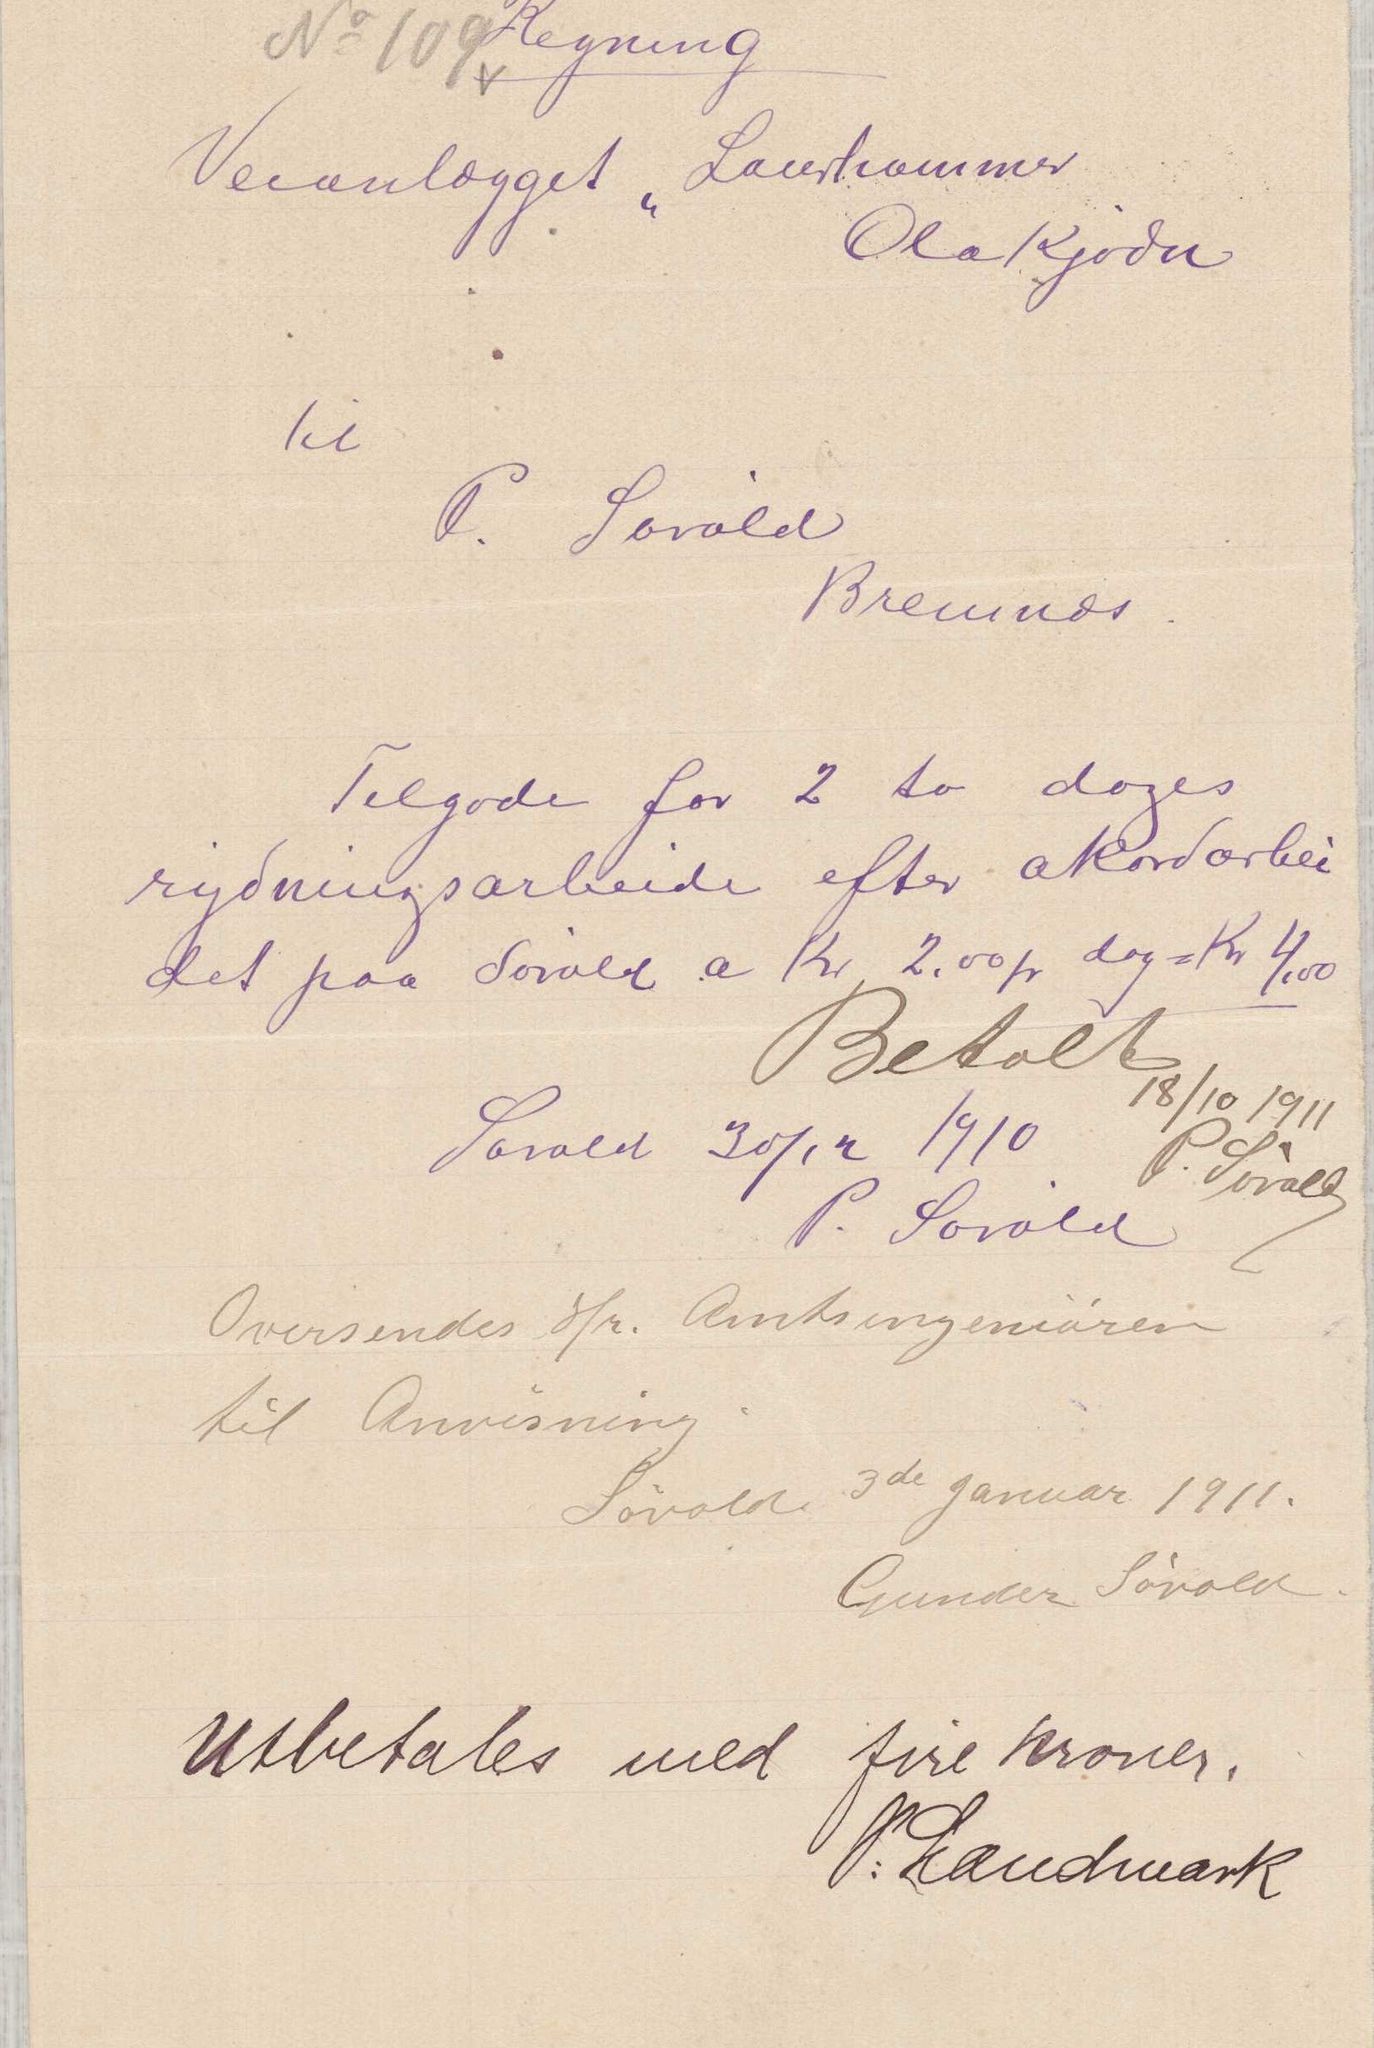 No 109
Regning
Veianlægget „ Laurhammer
Ola Kjödn
til
P. Sövold
Bremnæs.
Tilgode for 2 to dages
rydningsarbeide efter akkordarbei
det paa Sövold a Kr 2.00 pr dag = Kr 4,00
Betalt
18/10 1911
P. Sövold
Sövold 30/12 1910
P. Sövold
Oversendes Hr. Amtsingeniören
til Anvisning.
Sövold 3de Januar 1911.
Gunder Sövold.
Utbetales med fire kroner.
P. Landmark